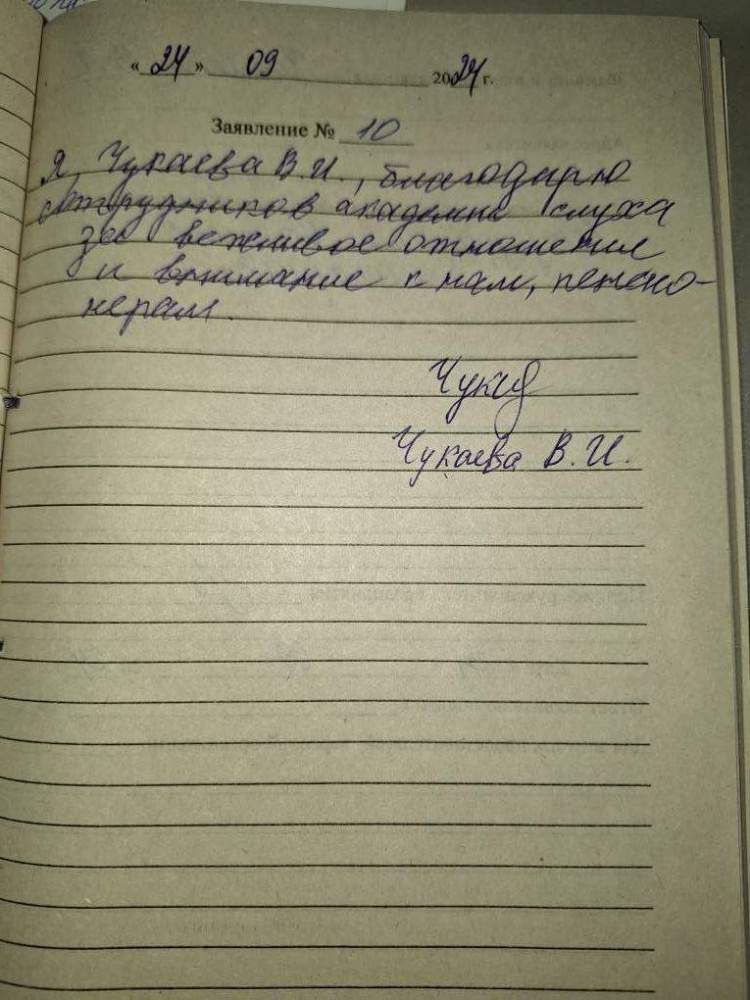 « 24 » 09 2024 г.
Заявление № 10
Я, Чукаева В.И., благодарю
сотрудников академии слуха
за вежливое отношения
и внимание к нам, пенсио-
нерам.
Чукаева В.И.